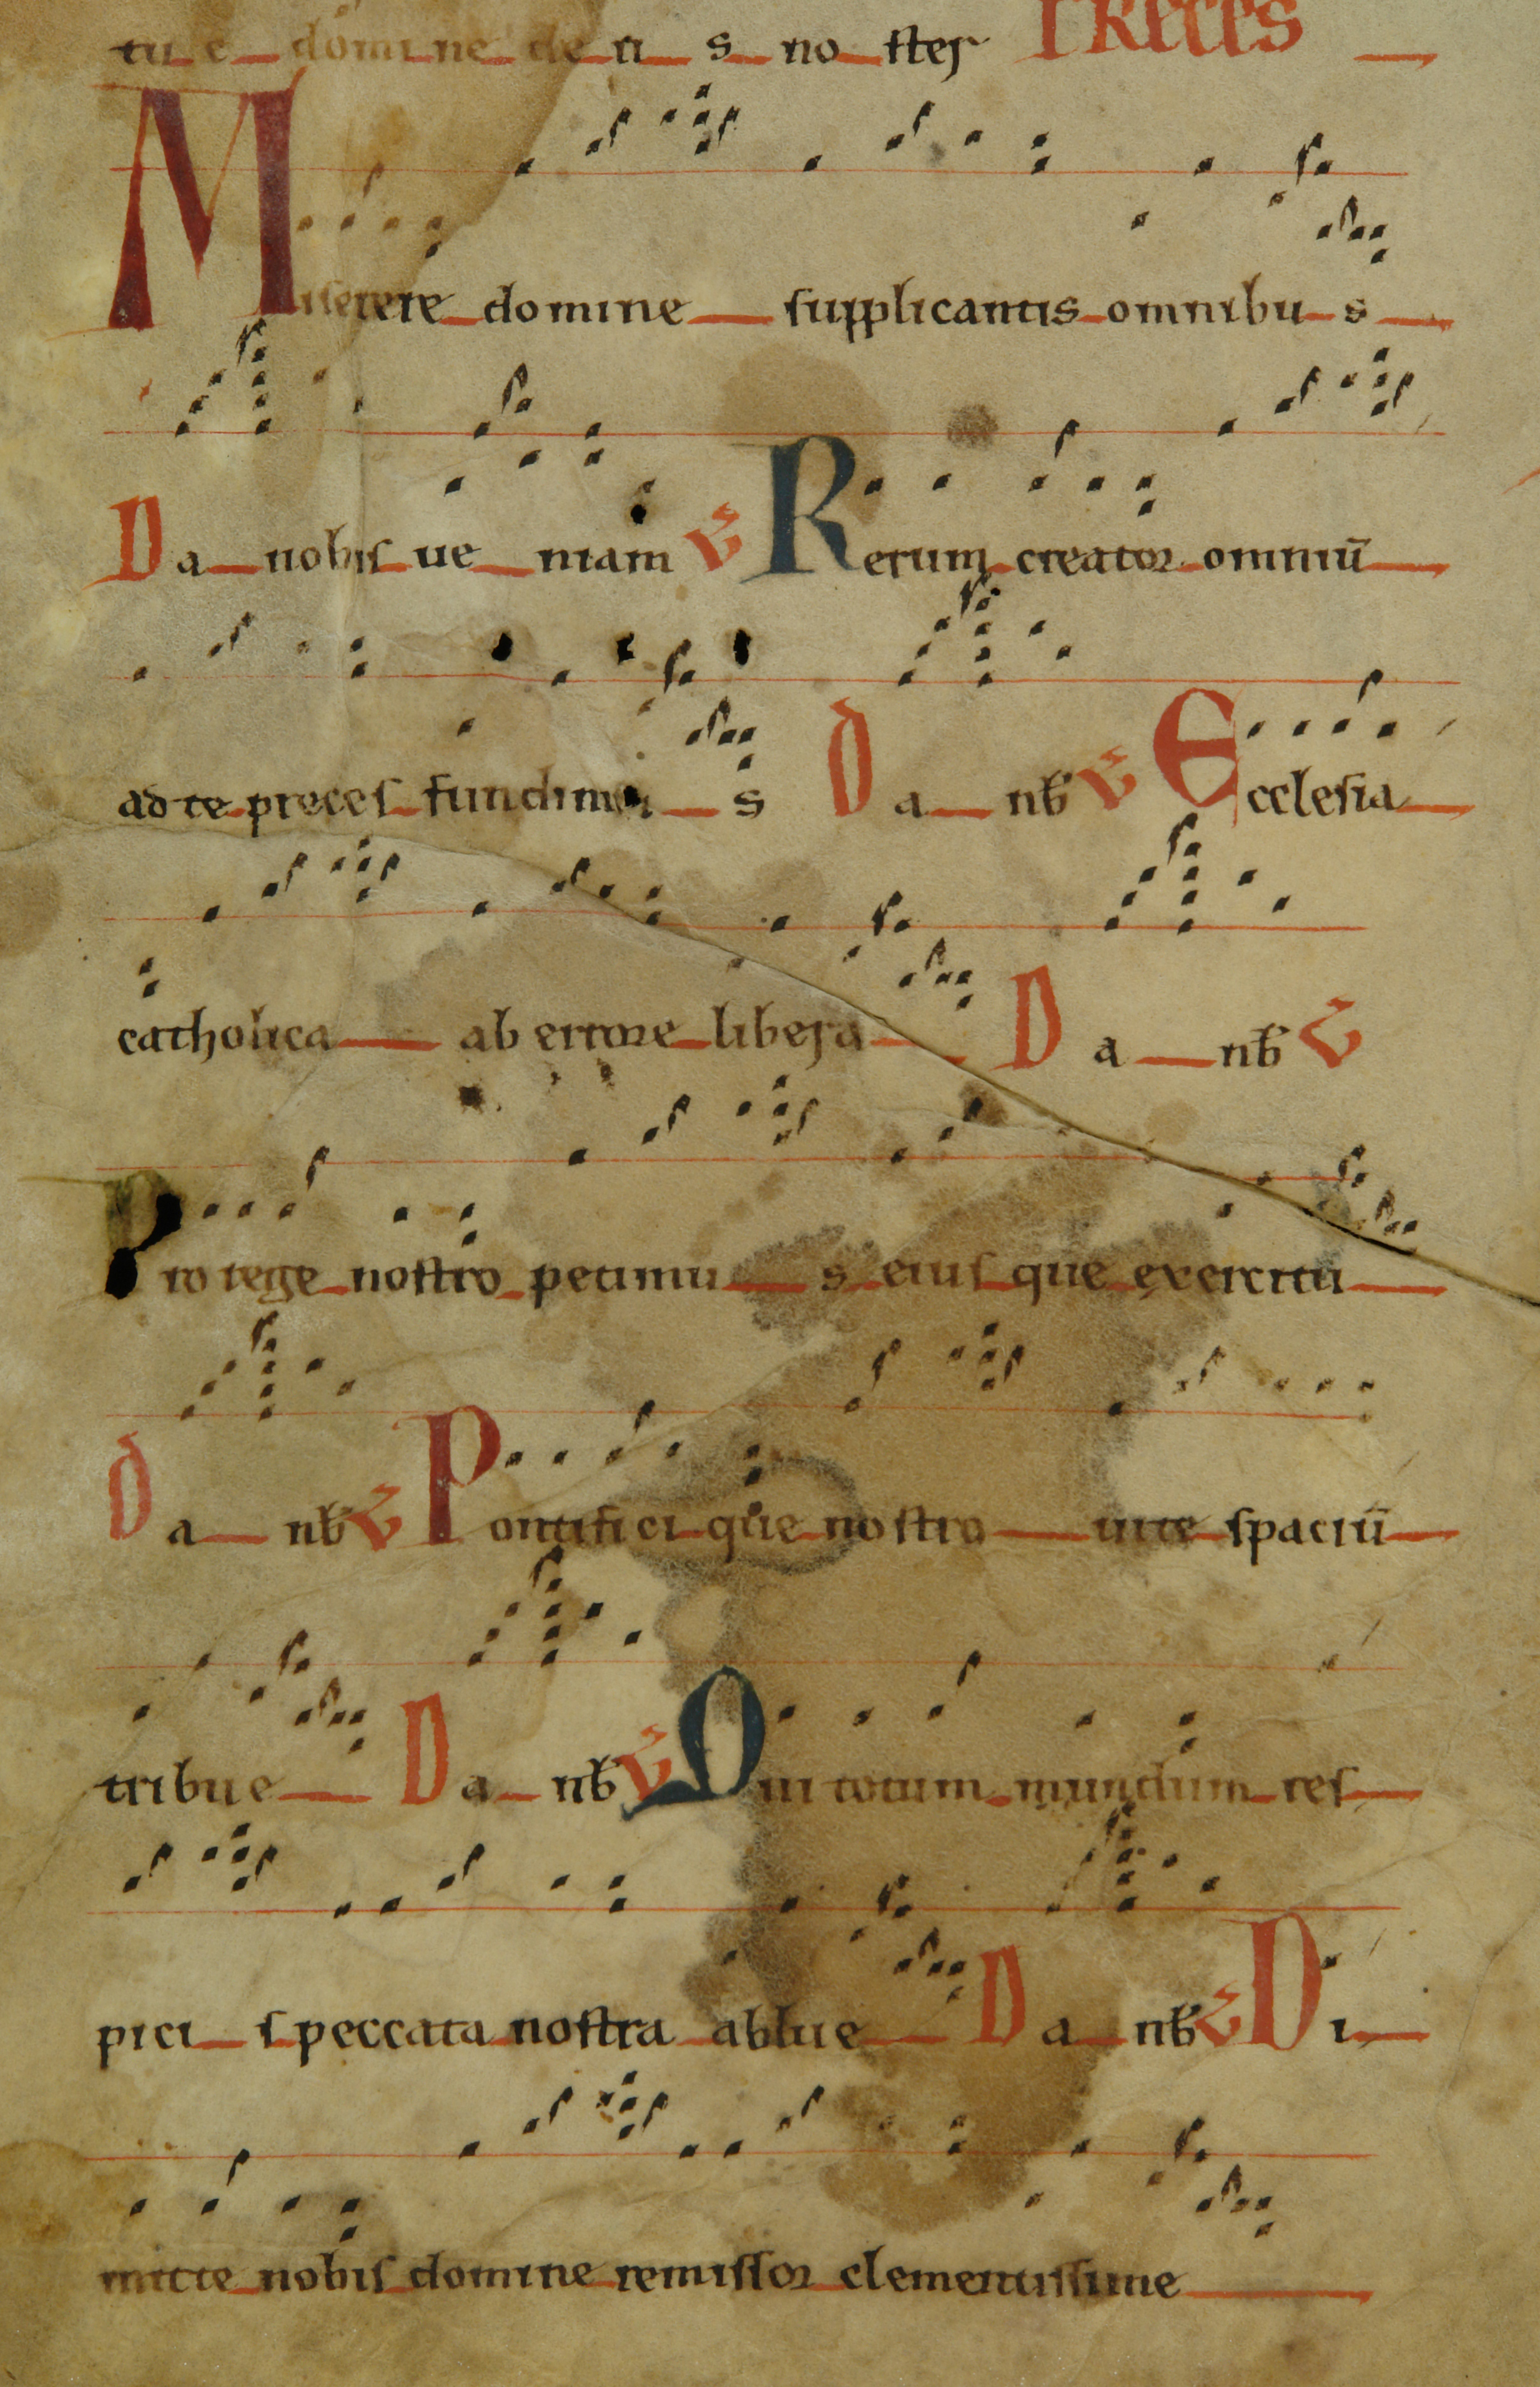 tu e domine de u s no ster PRECES
Miserere domine supplicantis omnibu s
Da nobis ue niam V Rerum creator omniū
ad te preces fundimu s Da nb̄ V Ecclesia
catholica ab errore libera Da nb̄ V
Pro rege nostro petimu s eius que exercitu
Da nb̄ V Pontifici que nostro uite spaciū
tribue Da nb̄ V Qui totum mundum res
pici s peccata nostra ablue Da nb̄ V Di
mitte nobis domine remissor clementissime